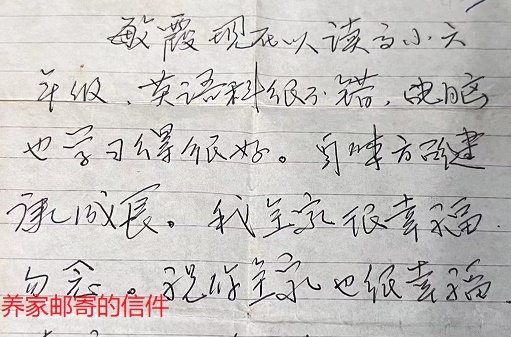 敏霞现在以读了小六
年级、英语科很不错,电脑
也学习得很好。身体方面健
康成长。我全家很幸福.
勿念。祝你全家也很幸福
养家邮寄的信件